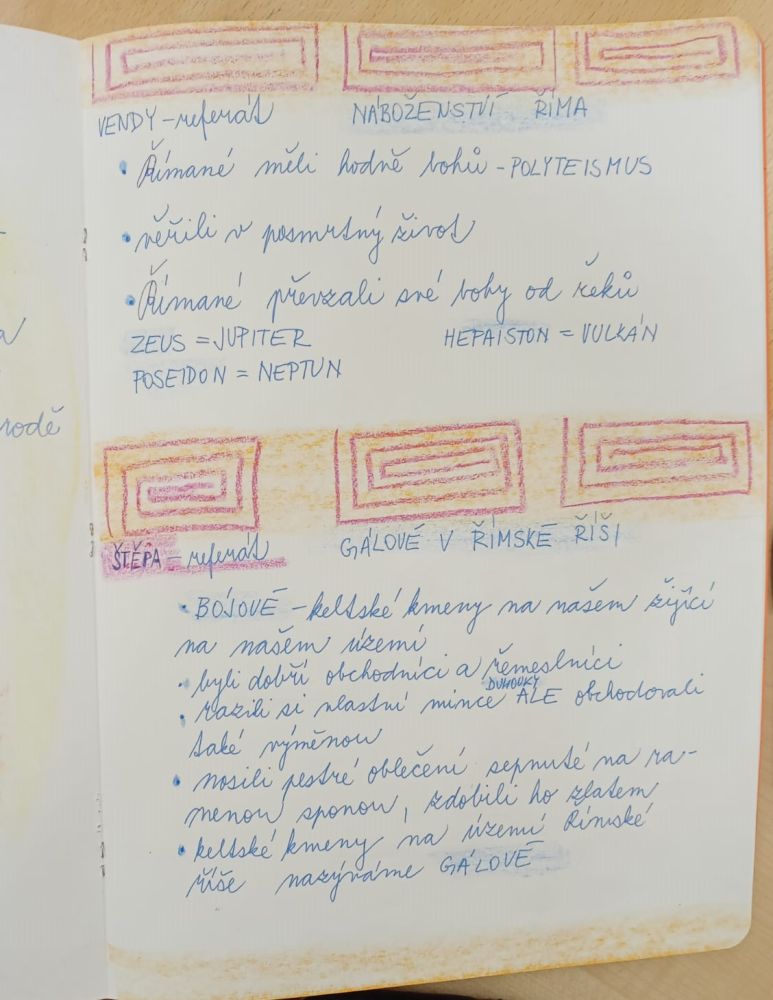 VENDY – referát NÁBOŽENSTVÍ ŘÍMA
• Římané měli hodně bohů – POLYTEISMUS
• věřili v posmrtný život
• Římané převzali své bohy od řeků
ZEUS = JUPITER HEFAISTON = VULKÁN
POSEIDON = NEPTUN
ŠTĚPA – referát GÁLOVÉ V ŘÍMSKÉ ŘÍŠI
• BÓJOVÉ – keltské kmeny na našem žijící
na našem území
• byli dobří obchodníci a řemeslníci
DUHOVKY
• razili si vlastní mince ALE obchodovali
také výměnou
• nosili pestré oblečení sepnuté na ra-
menou sponou, zdobili ho zlatem
• keltské kmeny na území Římské
říše nazýváme GÁLOVÉ
rodě